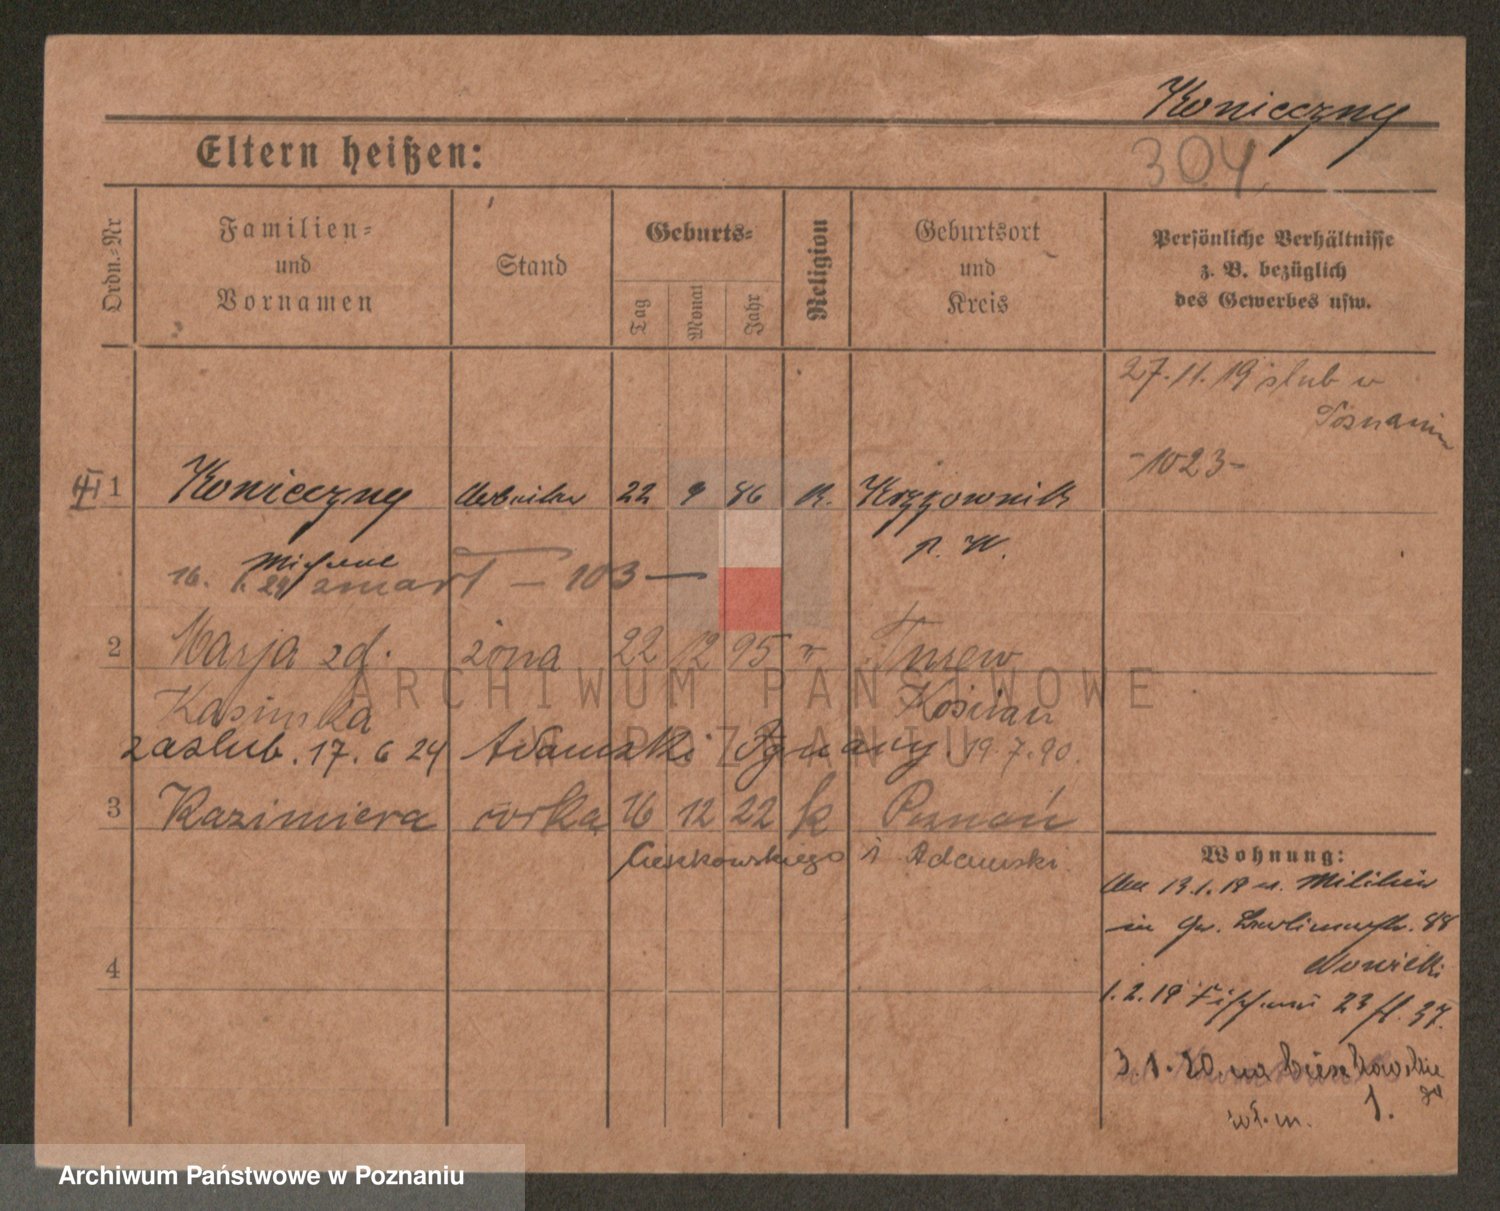 Konieczny
Eltern heißen:
304
Ordn.-Nr
Familien-
und
Vornamen
Stand
Geburts-
Tag
Monat
Jahr
Religion
Geburtsort
und
Kreis
Persönliche Verhältnisse
z. B. bezüglich
des Gewerbes usw.
27.11.19 slub w
Poznaniu
-1023-
1 Konieczny Arbeiter 22 9 86 K. Krzyzownik
p. W.
Michael
16. 1. 24 zmarł - 103 -
2 Marja zd. żona 22 12 95 r
Kasinska Kościan
zaslub. 17. 6 24 Adamski Ignacy. 19.7.90.
3 Kazimiera córka 16 12 22 k Poznań
Cieszkowskiego 1 Adamski.
4
Wohnung:
13.1.19 Militär
in 88
Nowicki
1.2.19 23 37.
3.1.20. na Cieszkowskie
go
1.
wł. m.
ARCHIWUM PAŃSTWOWE
W POZNANIU
Archiwum Państwowe w Poznaniu